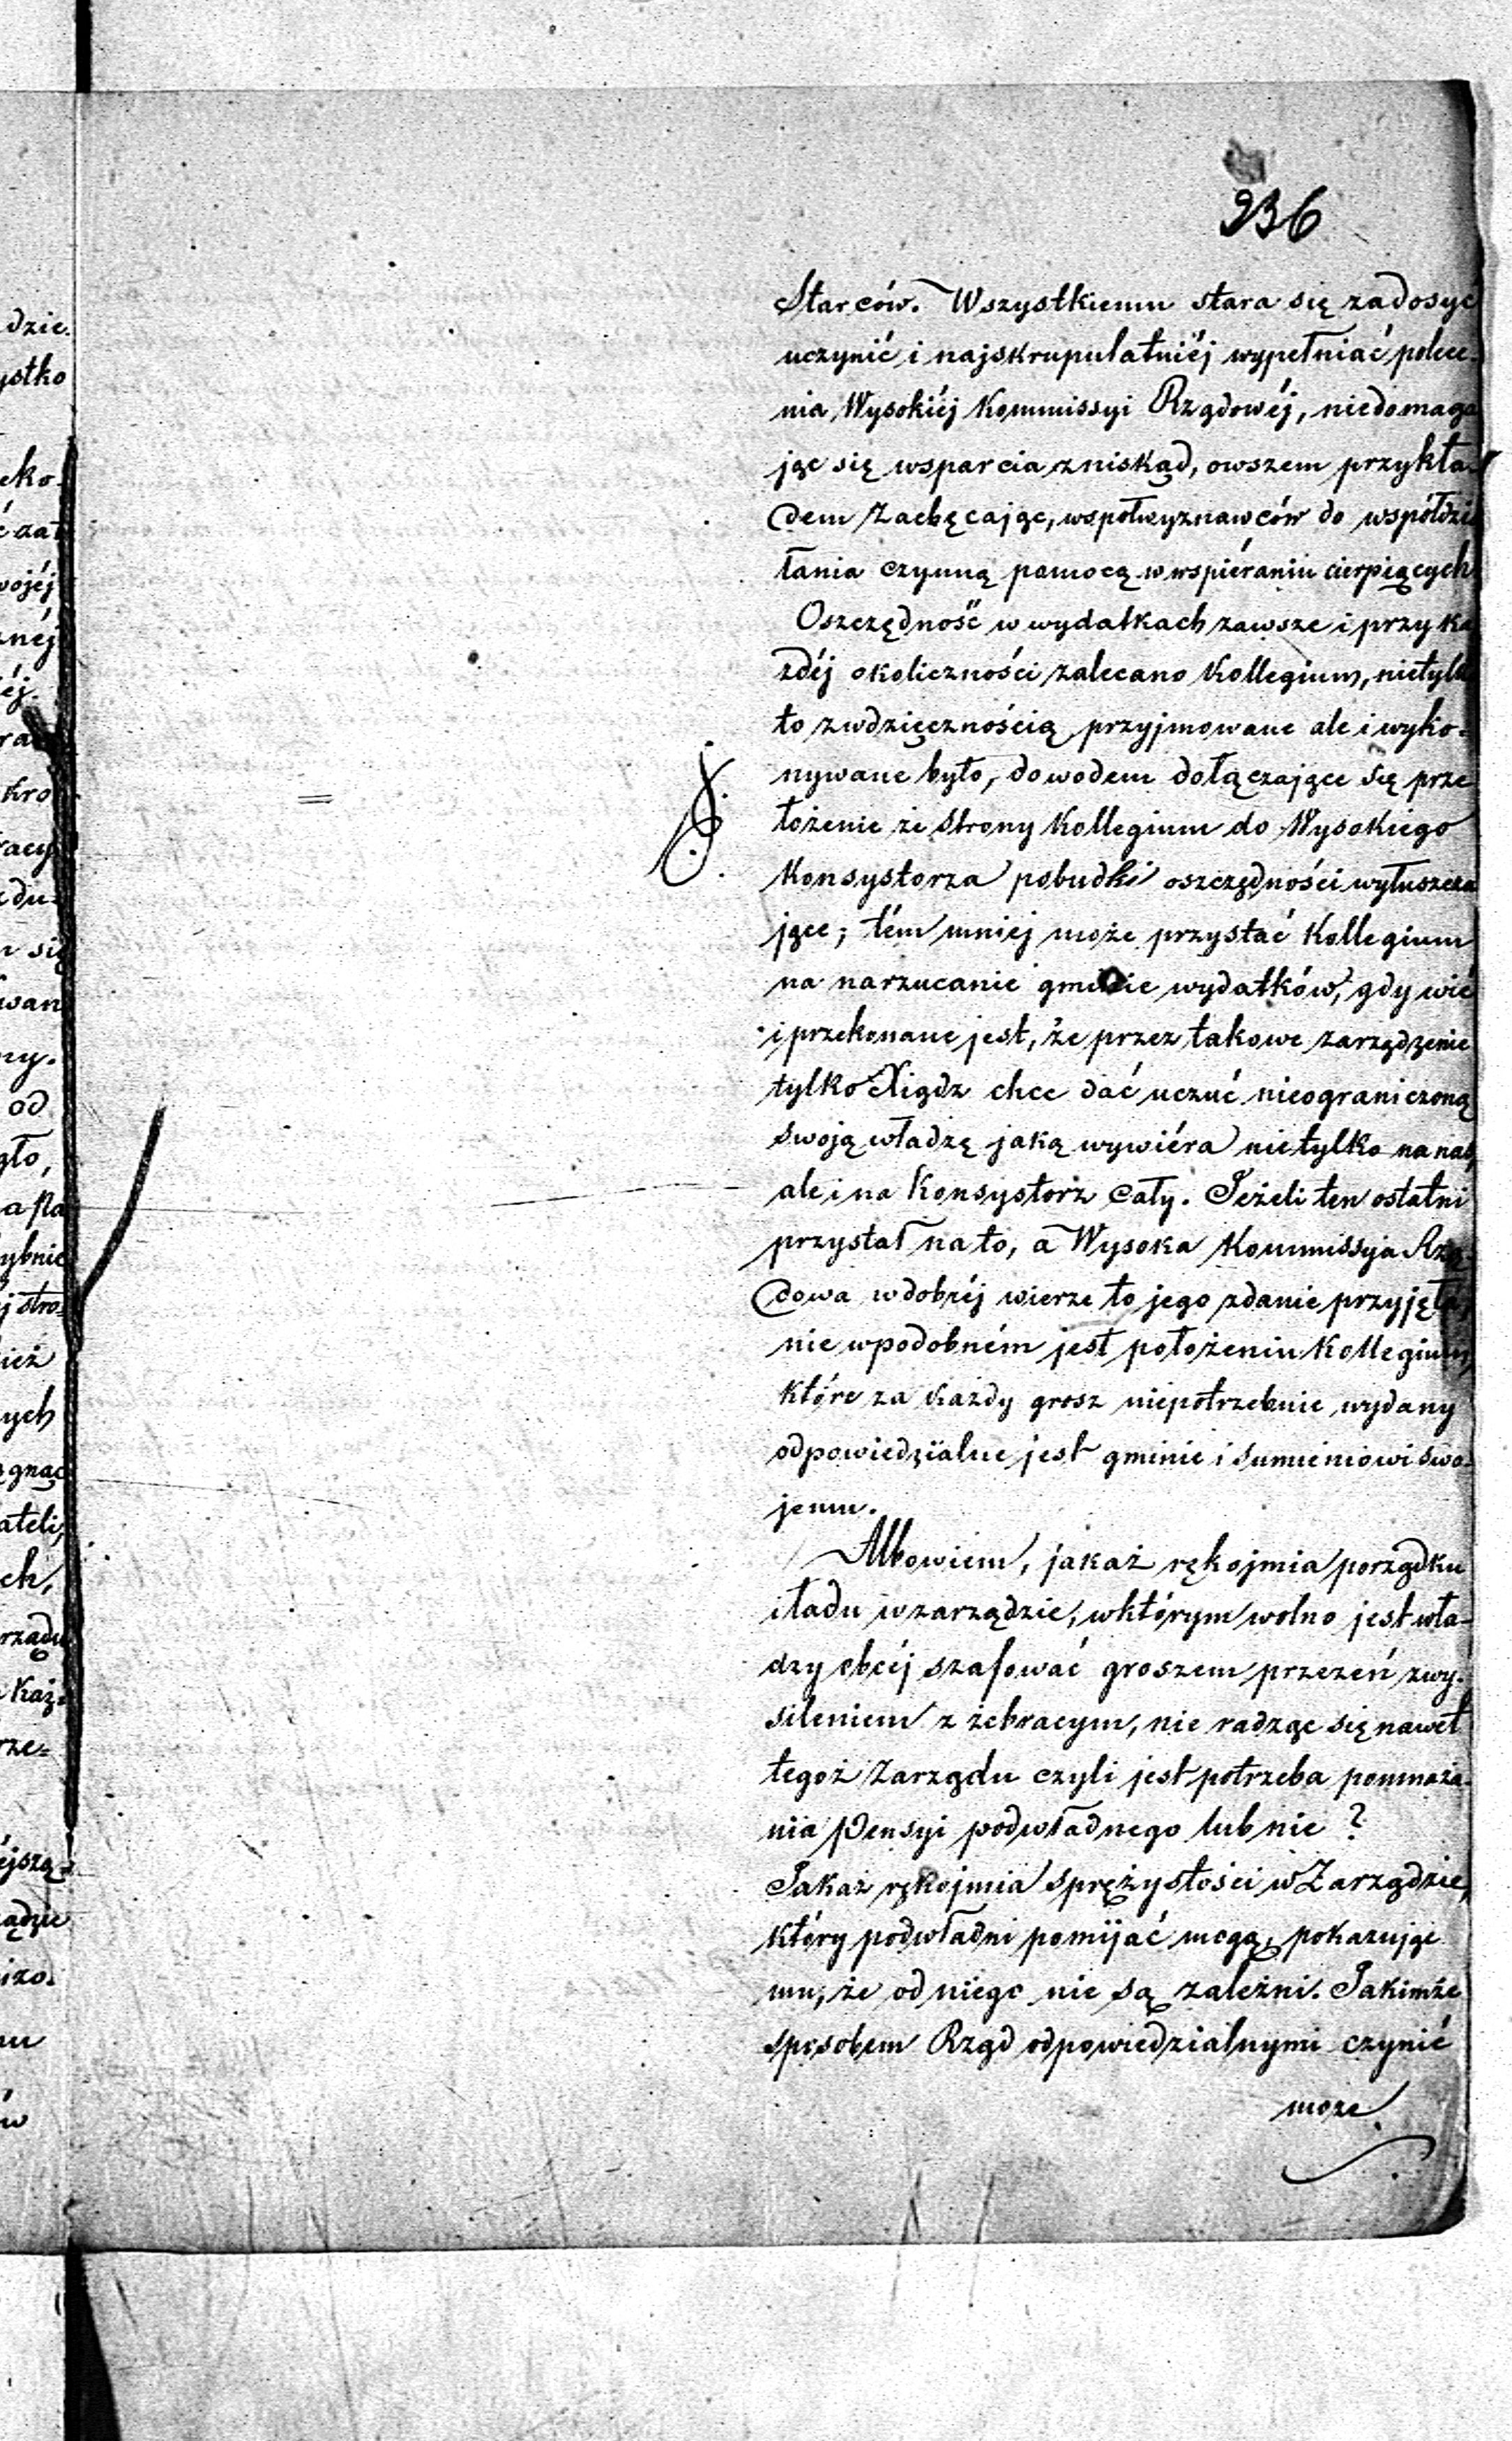 236
Starców. Wszystkiemu stara się zadosyć
uczynić i najskrupulatniéj wypełniać polece-
nia Wysokiéj Kommissyi Rządowéj, niedomaga
jąc się wsparcia zniskąd, owszem przykła-
dem zachęcając, współwyznawców do współdzia
łania czynną pomocą w wspiéraniu cierpiących
Oszczędność w wydatkach zawsze i przy ka
zdéj okoliczności zalecano Kollegium, nietylko
to zwdzięcznością przyjmowane ale i wyko-
nywane było, dowodem dołączające się prze
łożenie ze strony Kollegium do Wysokiego
Konsystorza pobudki oszczędności wyłuszcza
jące; tém mniej może przystać Kollegium
na narzucanie gminie wydatków, gdy wié
i przekonane jest, że przez takowe zarządzenie
tylko Xiądz chce dać uczuć nieograniczoną
swoją władzę jaką wywiéra nietylko na nas,
ale i na Konsystorz cały. Jeżeli ten ostatni
przystał na to, a Wysoka Kommissyja Rzą-
dowa w dobréj wierze to jego zdanie przyjęła,
nie wpodobném jest położeniu Kollegium,
które za każdy grosz niepotrzebnie wydany
odpowiedzialne jest gminie i sumieniowi swo-
jemu.
Albowiem, jakaż rękojmia porządku
i ładu w zarządzie, w którym wolno jest wła-
dzy obcéj szafować groszem przezeń zwy-
sileniem z żebraczym, nie radząc się nawet
tegoż Zarządu czyli jest potrzeba pomnaża-
nia pensyi podwładnego lub nie?
Jakaż rękojmia sprężystości w Zarządzie,
który podwładni pomijać mogą, pokazując
mu, że od niego nie są zależni. Jakimże
sposobem Rząd odpowiedzialnymi czynić
może
dzie.
ystko
eko-
wojéj
znéj
éj.
kro
racy
zdu-
m się
wan
ny.
od
gło,
a Pa
hybnie
j stro-
ież
ych
ągnąć
ateli,
ch,
rządu
Każ-
rze-
éjszą-
ądzie
izo.
nu
ów